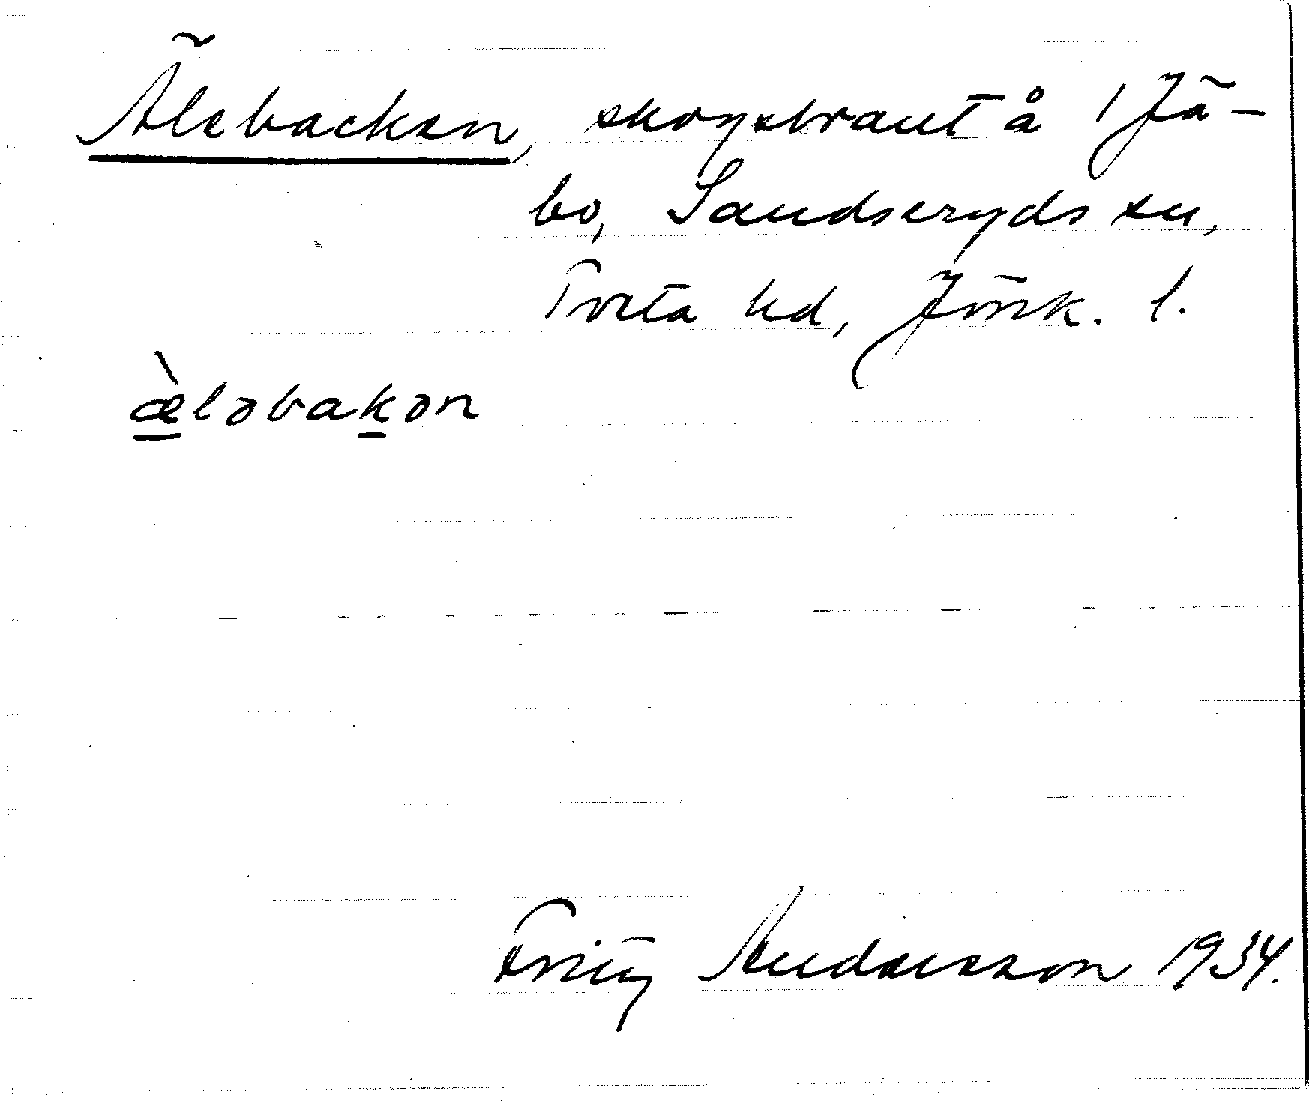 Älebacken, skogsbrant å 1 Jä-
bo, Sandseryds sn,
Tveta hd, Jönk. l.
æ̀ləbakən
Fritz Andersson 1934.